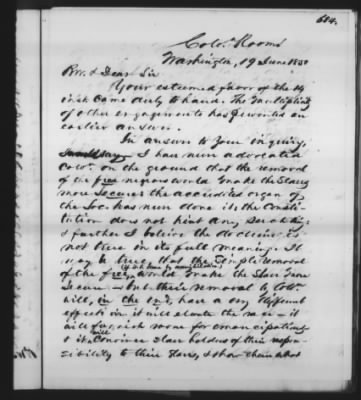 684.
Colon. Rooms
Washington, 19 June 1850
Rev. & Dear Sir
Your esteemed favor of the 14
inst. came duly to hand. The multiplicity
of other engagements has prevented an
earlier answer.
In answer to your inquiry,
I have never advocated
Colo. on the ground that the removal
of the free negroes would make the slaves
more secure the accredited organ of
the Soc. has never done it. The Consti-
tution does not hint any such thing.
& farther I believe the doctrine is
not true in its full meaning. It
may be true that the simple removal
of the free, would make the slaves more
secure — but their removal to Colo.
will, in the end, have a very different
effect: in it will elevate the race — it
will furnish room for emancipation,
& it will convince slave holders of their respon-
sibility to their slaves, & show them what